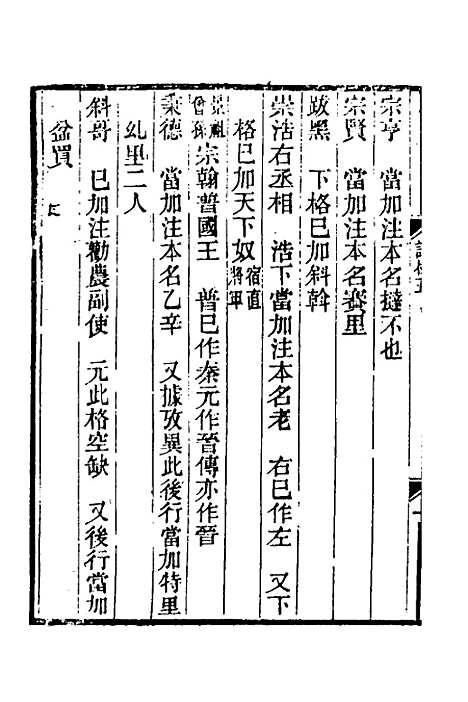 宗亨　當加注本名撻不也
宗賢　當加注本名賽里
跋黑　下格巳加斜斡
崇浩右丞相　浩下當加注本名老　右巳作左　又下
格巳加天下奴宿直將軍
景祖曾孫宗翰普國王　普巳作秦元作晉傳亦作晉
秉德　當加注本名乙辛　又據攷異此後行當加特里
乣里二人
斜哥　巳加注勸農副使　元此格空缺　又後行當加
盆買